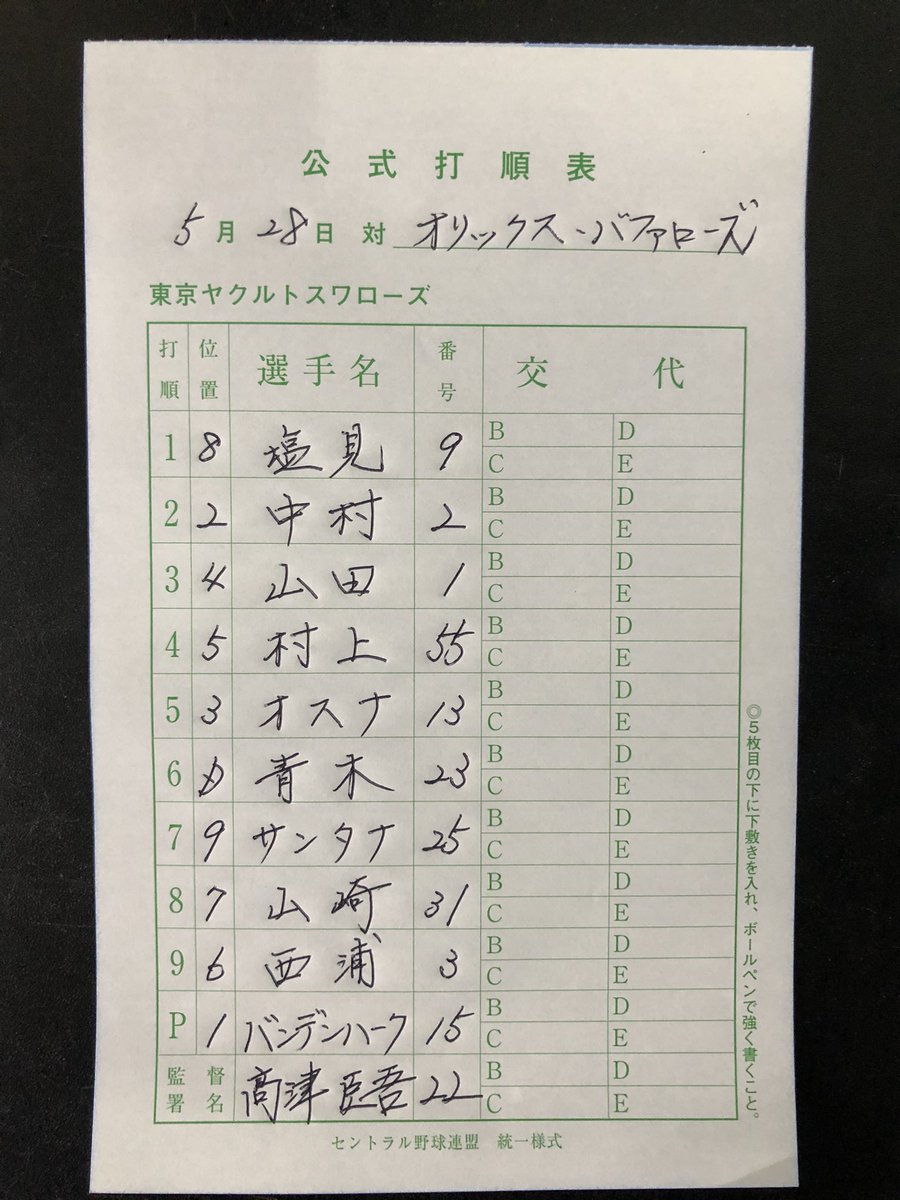 公式打順表
5月28日 対 オリックス・バファローズ
東京ヤクルトスワローズ
打順 位置 選手名 番号 交代
1 8 塩見 9 B D C E
2 2 中村 2 B D C E
3 4 山田 1 B D C E
4 5 村上 55 B D C E
5 3 オスナ 13 B D C E
6 D 青木 23 B D C E
7 9 サンタナ 25 B D C E
8 7 山崎 31 B D C E
9 6 西浦 3 B D C E
P 1 バンデンハーク 15 B D C E
監督署名 高津臣吾 22 B D C E
セントラル野球連盟 統一様式
◎5枚目の下に下敷きを入れ、ボールペンで強く書くこと。